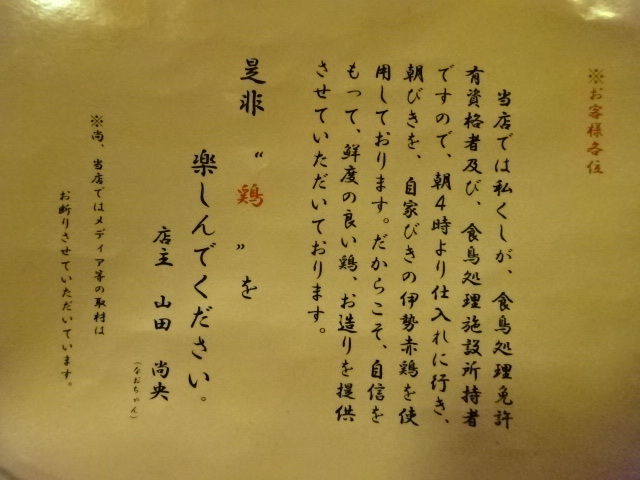 ※お客様各位
当店では私くしが、食鳥処理免許
有資格者及び、食鳥処理施設所持者
ですので、朝4時より仕入れに行き、
朝びきを、自家びきの伊勢赤鶏を使
用しております。だからこそ、自信を
もって、鮮度の良い鶏、お造りを提供
させていただいております。
是非“鶏”を
楽しんでください。
店主 山田 尚央
(なおちゃん)
※尚、当店ではメディア等の取材は
お断りさせていただいています。